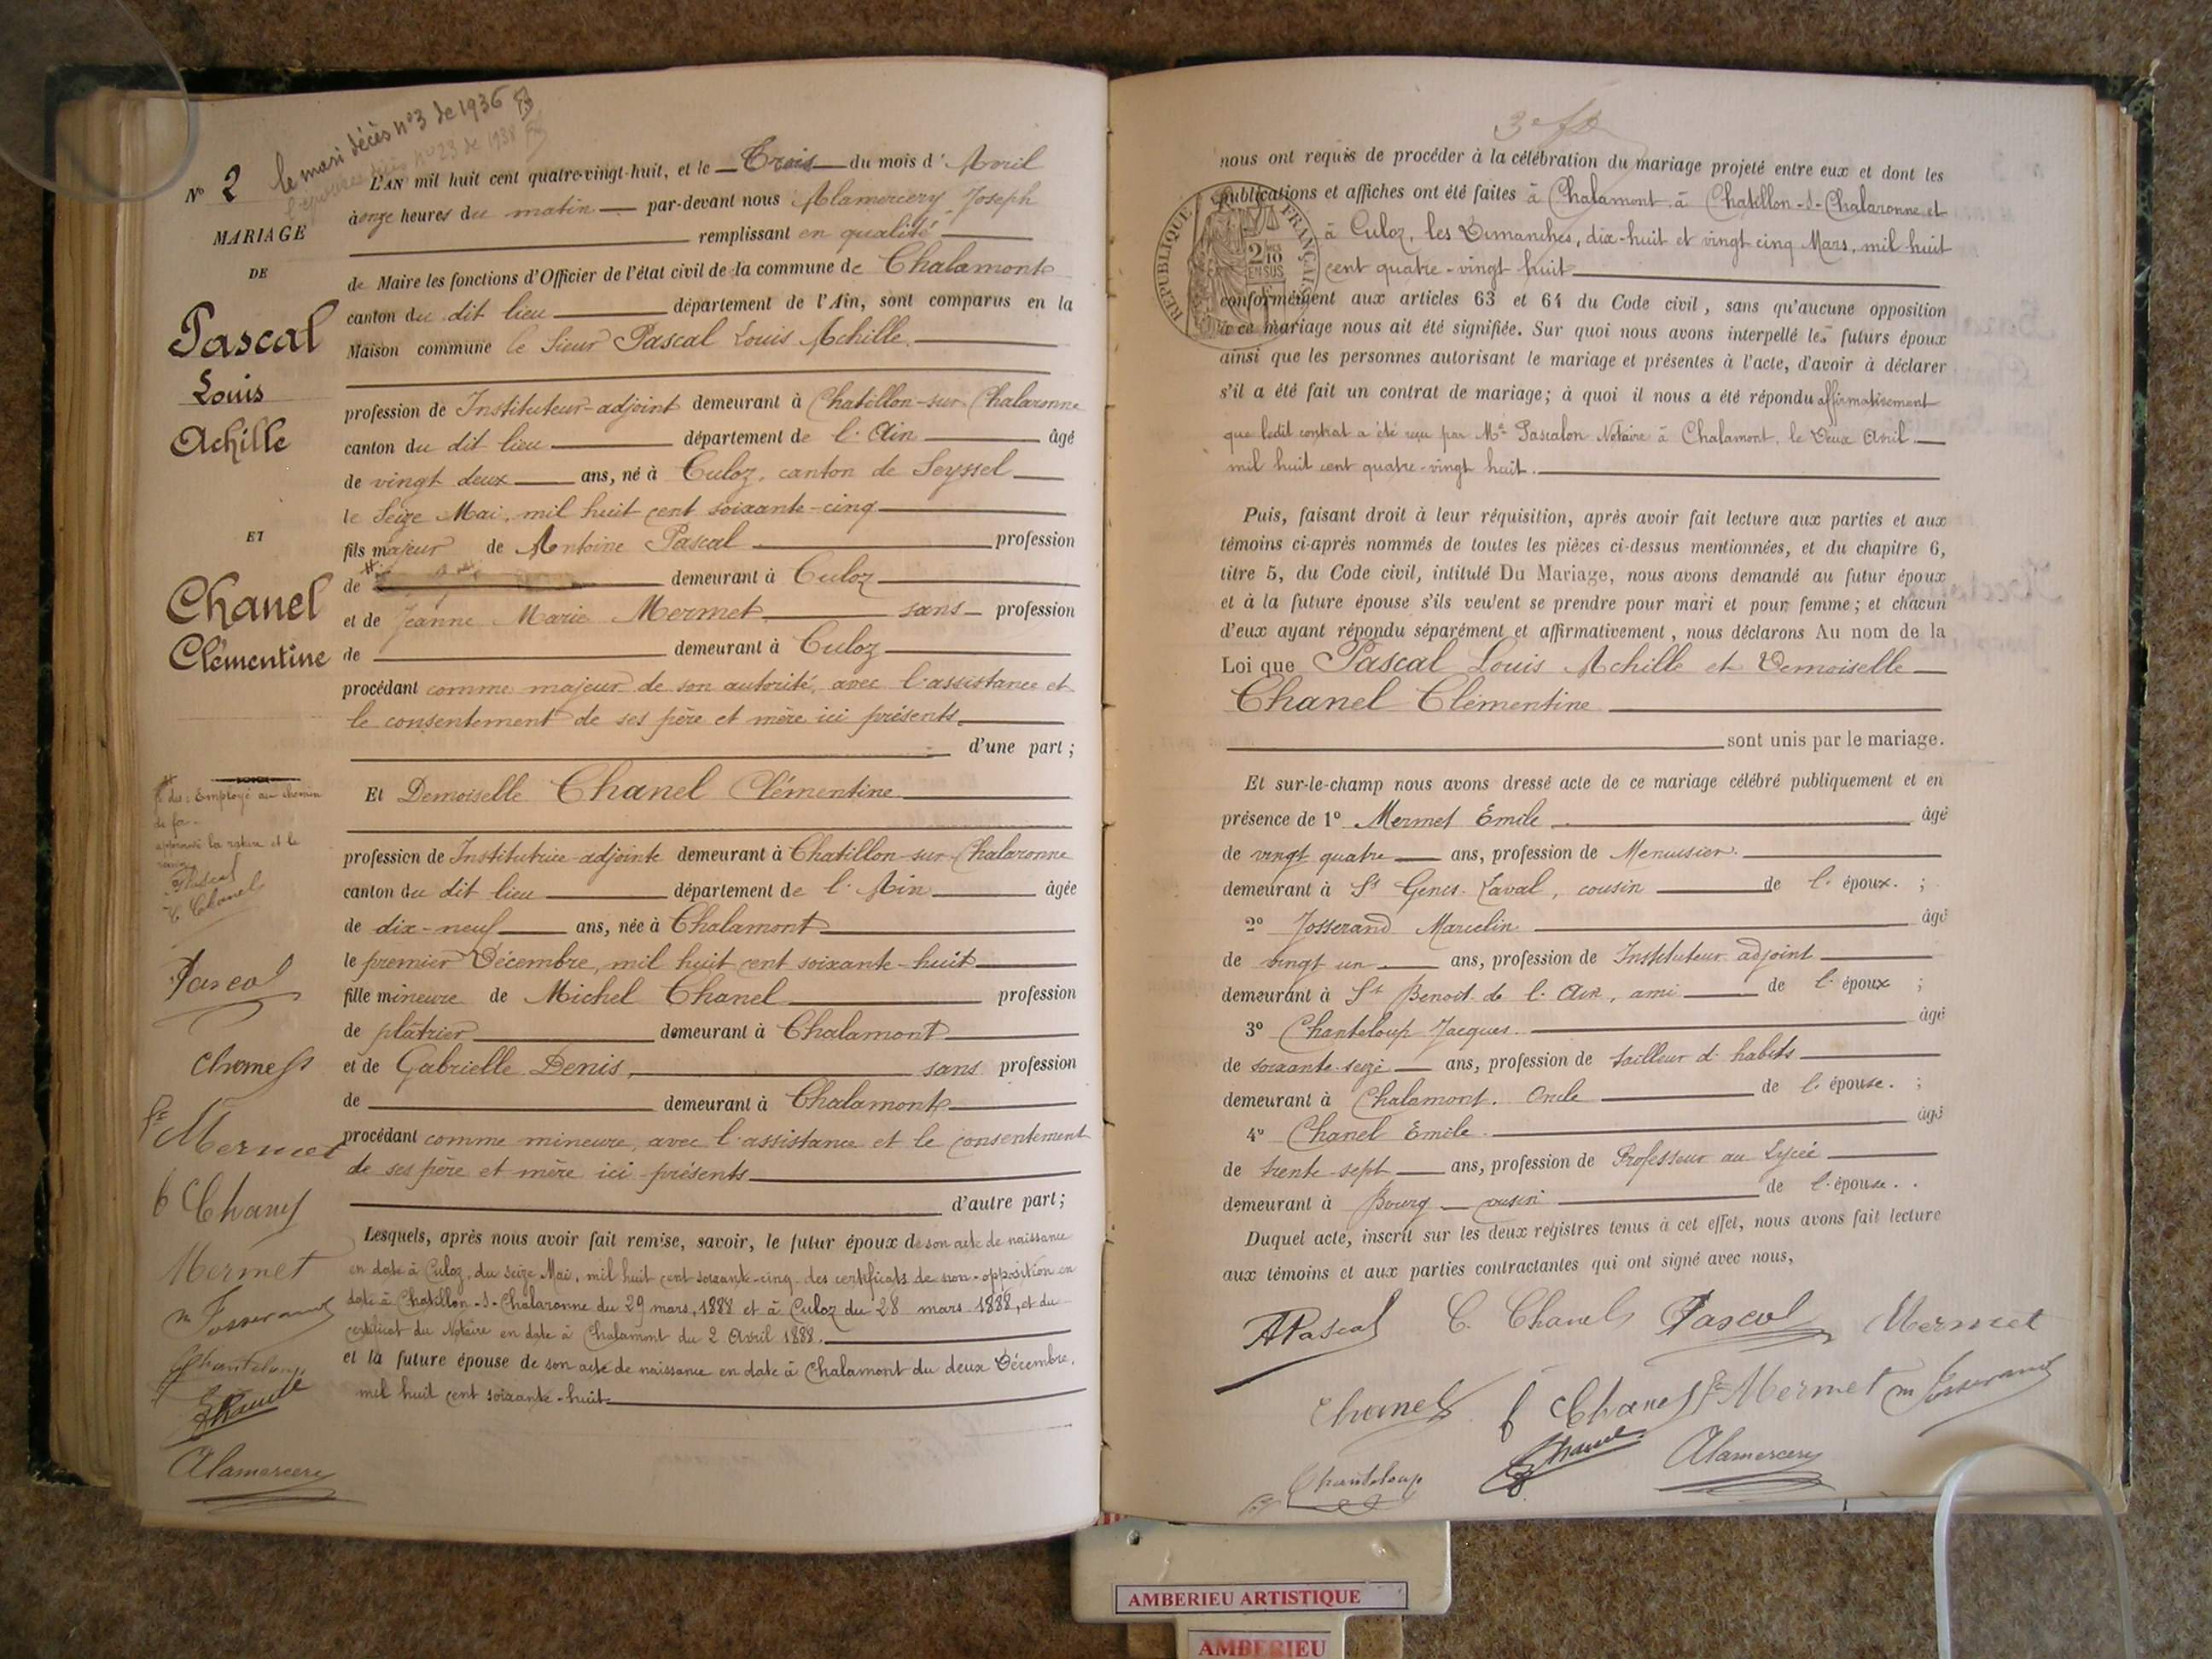 le mari décès n°3 de 1936
l'épouse décès n°23 de 1938
N° 2
MARIAGE
DE
Pascal
Louis
Achille
ET
Chanel
Clémentine
# dis : Employé au chemin
de fer -
approuvé la rature et le
renvoi
APascal
C Chanel
Pascal
Chanel
fs Mermet
f Chanel
Mermet
m Josserand
Chanteloup
E Chanel
Alamercery
L'AN mil huit cent quatre-vingt-huit, et le Trois du mois d'Avril
à onze heures du matin par-devant nous Alamercery Joseph
remplissant en qualité
de Maire les fonctions d'Officier de l'état civil de la commune de Chalamont
canton du dit lieu département de l'Ain, sont comparus en la
Maison commune le Sieur Pascal Louis Achille
profession de Instituteur-adjoint demeurant à Chatillon-sur-Chalaronne
canton du dit lieu département de l'Ain âgé
de vingt deux ans, né à Culoz, canton de Seyssel
le Seize Mai, mil huit cent soixante-cinq
fils majeur de Antoine Pascal profession
de # demeurant à Culoz
et de Jeanne Marie Mermet sans profession
de demeurant à Culoz
procédant comme majeur de son autorité, avec l'assistance et
le consentement de ses père et mère ici présents
d'une part ;
Et Demoiselle Chanel Clémentine
profession de Institutrice-adjointe demeurant à Chatillon-sur-Chalaronne
canton du dit lieu département de l'Ain âgée
de dix-neuf ans, née à Chalamont
le premier Décembre, mil huit cent soixante-huit
fille mineure de Michel Chanel profession
de plâtrier demeurant à Chalamont
et de Gabrielle Denis, sans profession
de demeurant à Chalamont
procédant comme mineure, avec l'assistance et le consentement
de ses père et mère ici présents
d'autre part ;
Lesquels, après nous avoir fait remise, savoir, le futur époux de son acte de naissance
en date à Culoz, du seize Mai, mil huit cent soixante-cinq des certificats de non-opposition en
date à Chatillon-s-Chalaronne du 29 mars, 1888 et à Culoz du 28 mars 1888, et du
certificat du Notaire en date à Chalamont du 2 Avril 1888.
et la future épouse de son acte de naissance en date à Chalamont du deux Décembre,
mil huit cent soixante-huit
nous ont requis de procéder à la célébration du mariage projeté entre eux et dont les
publications et affiches ont été faites à Chalamont, à Chatillon-s-Chalaronne et
à Culoz, les Dimanches, dix-huit et vingt cinq Mars, mil huit
cent quatre-vingt huit
RÉPUBLIQUE FRANÇAISE
2/10 EN SUS
conformément aux articles 63 et 64 du Code civil, sans qu'aucune opposition
à ce mariage nous ait été signifiée. Sur quoi nous avons interpellé les futurs époux
ainsi que les personnes autorisant le mariage et présentes à l'acte, d'avoir à déclarer
s'il a été fait un contrat de mariage ; à quoi il nous a été répondu affirmativement
que ledit contrat a été reçu par Me Pascalon Notaire à Chalamont, le Deux Avril
mil huit cent quatre-vingt huit.
Puis, faisant droit à leur réquisition, après avoir fait lecture aux parties et aux
témoins ci-après nommés de toutes les pièces ci-dessus mentionnées, et du chapitre 6,
titre 5, du Code civil, intitulé Du Mariage, nous avons demandé au futur époux
et à la future épouse s'ils veulent se prendre pour mari et pour femme ; et chacun
d'eux ayant répondu séparément et affirmativement, nous déclarons Au nom de la
Loi que Pascal Louis Achille et Demoiselle
Chanel Clémentine
sont unis par le mariage.
Et sur-le-champ nous avons dressé acte de ce mariage célébré publiquement et en
présence de 1° Mermet Emile âgé
de vingt quatre ans, profession de Menuisier
demeurant à St Genis-Laval, cousin de l'époux. ;
2° Josserand Marcelin âgé
de vingt un ans, profession de Instituteur adjoint
demeurant à St Benoit de l'Ain, ami de l'époux ;
3° Chanteloup Jacques. âgé
de soixante-seize ans, profession de tailleur d'habits
demeurant à Chalamont. Oncle de l'épouse. ;
4° Chanel Emile âgé
de trente-sept ans, profession de Professeur au Lycée
demeurant à Bourg cousin de l'épouse. .
Duquel acte, inscrit sur les deux registres tenus à cet effet, nous avons fait lecture
aux témoins et aux parties contractantes qui ont signé avec nous,
APascal C. Chanel Pascal Mermet
Chanel f Chanel fs Mermet m Josserand
Chanteloup E Chanel Alamercery
AMBERIEU ARTISTIQUE
AMBERIEU